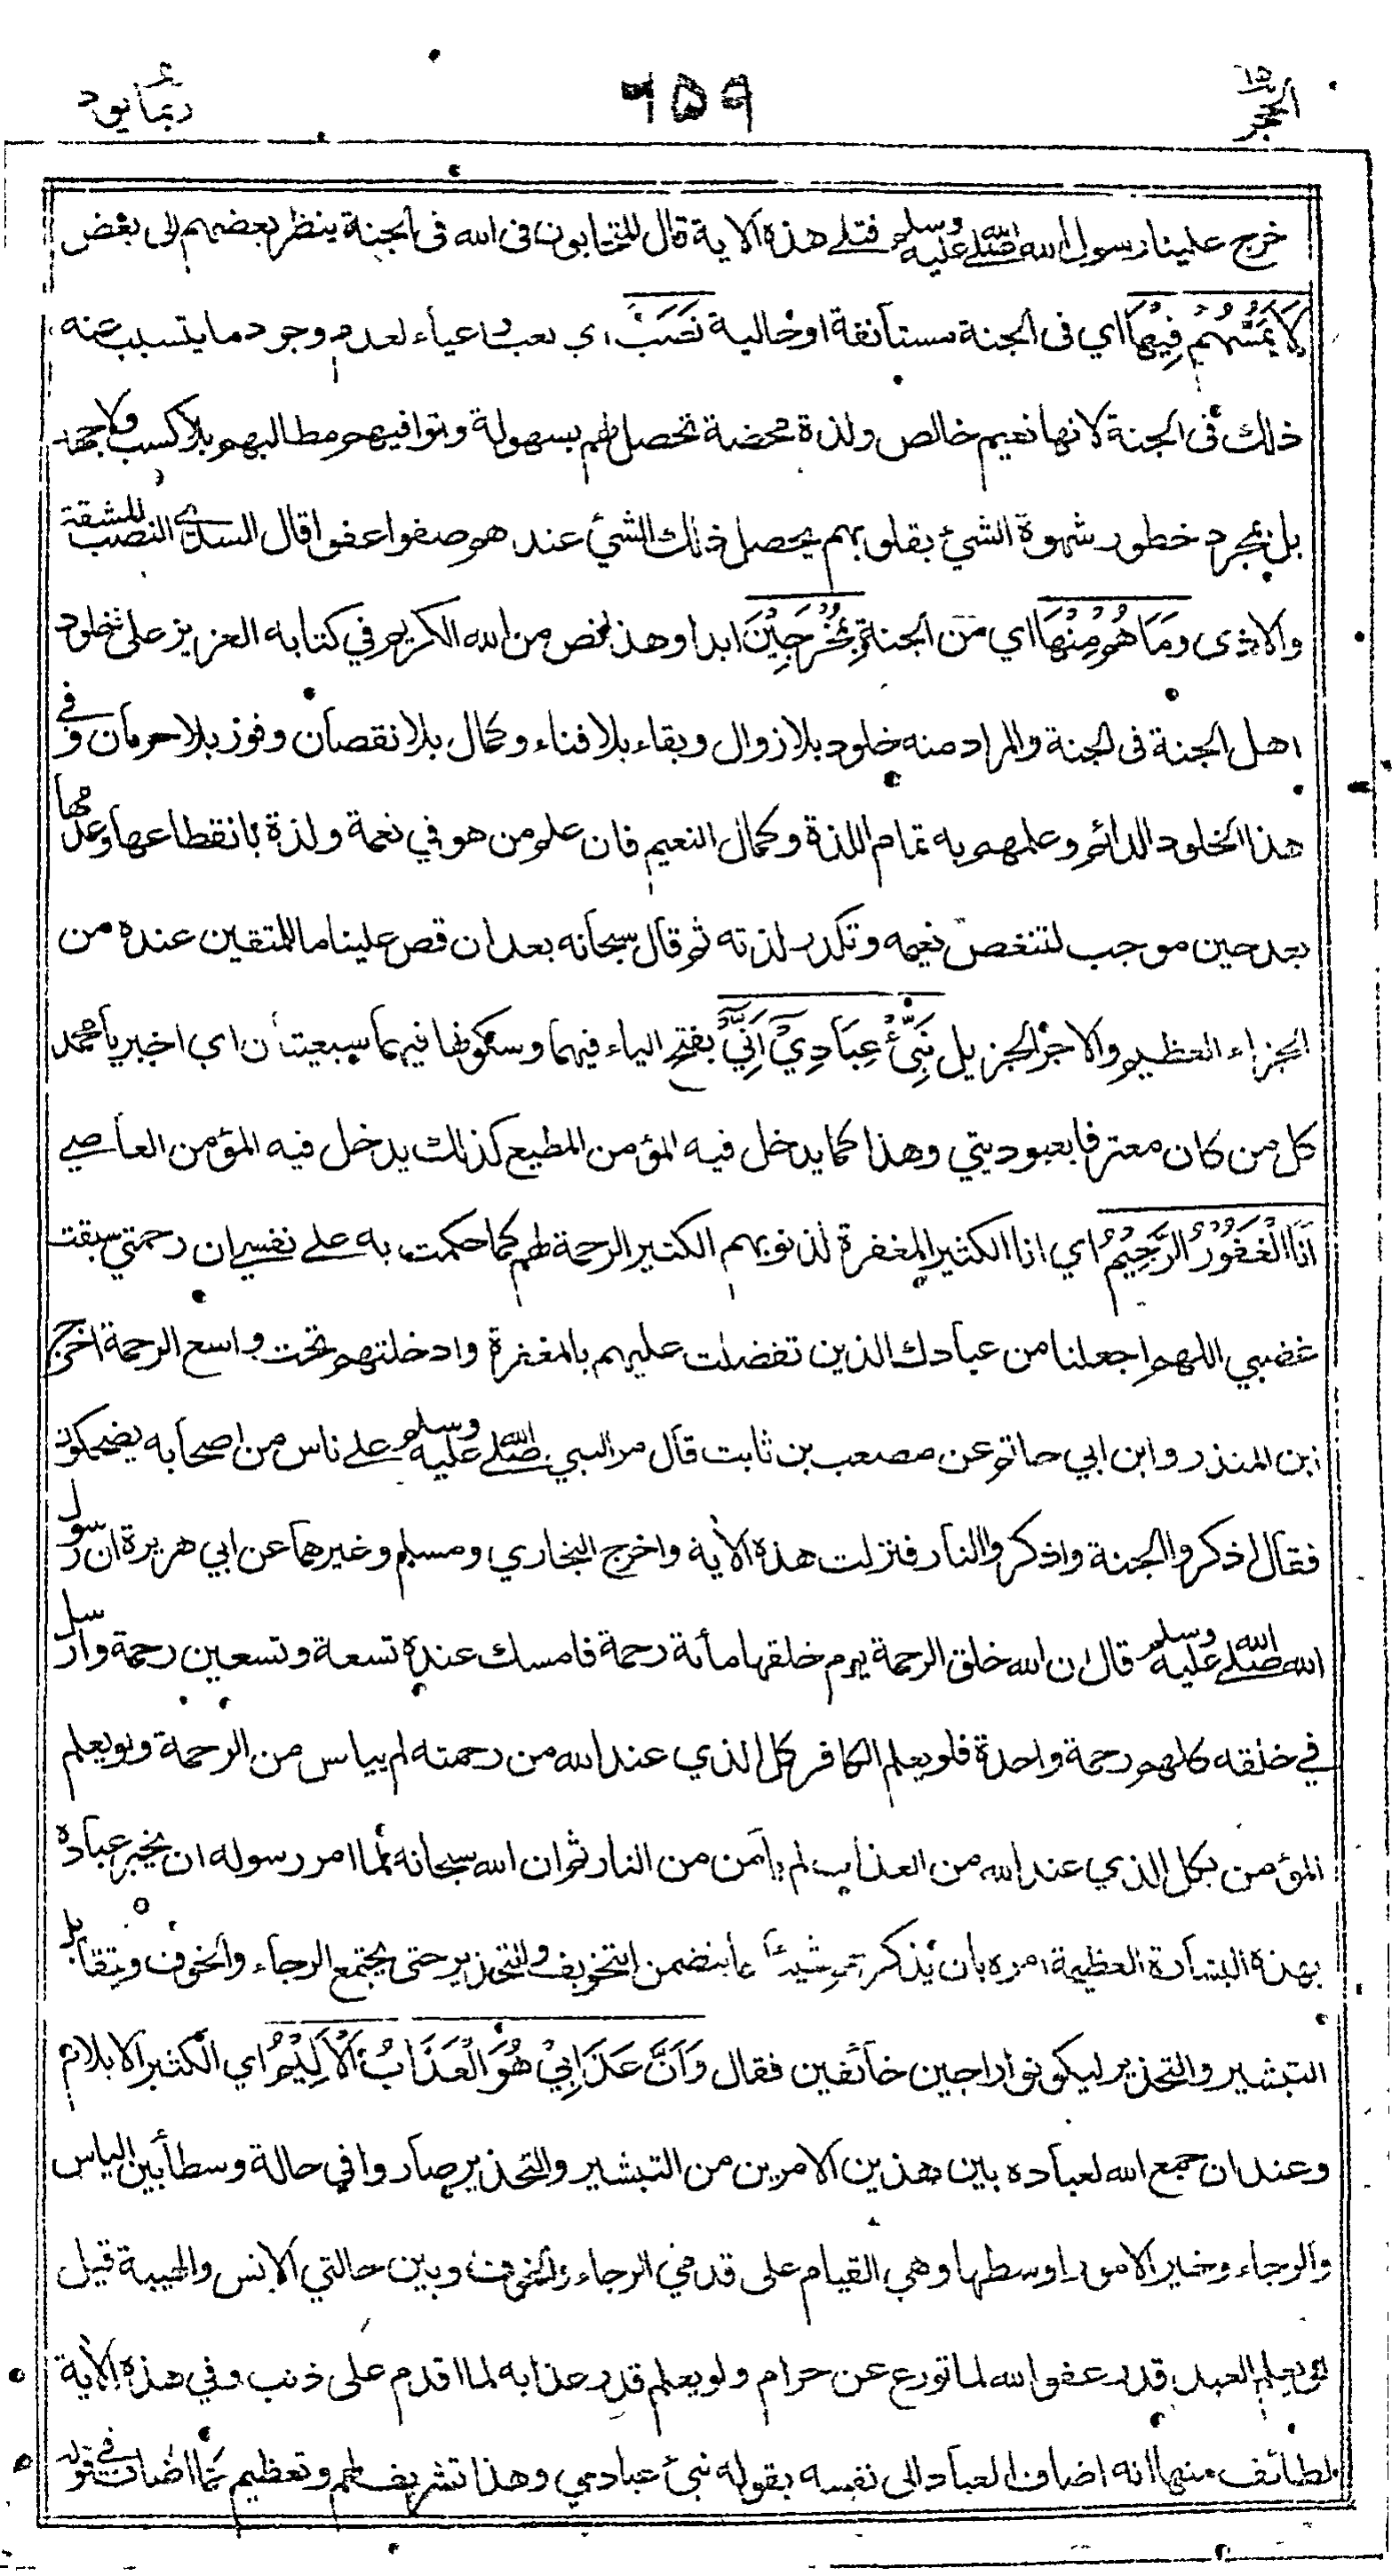 الحجر ١٥
٦٥٩
ربما يود
خرج علينا رسول الله صلى الله عليه وسلم فتلى هذه الآية قال المتحابون فى الله فى الجنة ينظر بعضهم الى بعض
لَا يَمَسُّهُمْ فِيْهَا اي فى الجنة مستأنفة او حالية نَصَبٌ اي تعب واعياء لعدم وجود ما يتسبب عنه
ذلك فى الجنة لانها نعيم خالص ولذة محضة تحصل لهم بسهولة وتوافيهم مطالبهم بلا كسب ولا جهد
بل بمجرد خطور شهوة الشئ بقلوبهم يحصل ذلك الشئ عندهم صفوا عفوا قال السدي النصب المشقة
والاذى وَمَا هُمْ مِنْهَا اي من الجنة بِمُخْرَجِيْنَ ابدا وهذا نص من الله الكريم في كتابه العزيز على خلود
اهل الجنة فى الجنة والمراد منه خلود بلا زوال وبقاء بلا فناء وكمال بلا نقصان وفوز بلا حرمان وفي
هذا الخلود الدائم وعلمهم به تمام اللذة وكمال النعيم فان علم من هو في نعمة ولذة بانقطاعها وعدمها
بعد حين موجب لتنغص نعيمه وتكدر لذته ثم قال سبحانه بعد ان قص علينا ما للمتقين عنده من
الجزاء العظيم والاجر الجزيل نَبِّئْ عِبَادِيْ اَنِّيْ بفتح الياء فيهما وسكونها فيهما سبعيتان اي اخبر يا محمد
كل من كان معترفا بعبوديتي وهذا كما يدخل فيه المؤمن المطيع كذلك يدخل فيه المؤمن العاصي
اَنَا الْغَفُوْرُ الرَّحِيْمُ اي انا الكثير المغفرة لذنوبهم الكثير الرحمة لهم كما حكمت به على نفسي ان رحمتي سبقت
غضبي اللهم اجعلنا من عبادك الذين تفضلت عليهم بالمغفرة وادخلتهم تحت واسع الرحمة اخرج
ابن المنذر وابن ابي حاتم عن مصعب بن ثابت قال مر النبي صلى الله عليه وسلم على ناس من اصحابه يضحكون
فقال اذكروا الجنة واذكروا النار فنزلت هذه الآية واخرج البخاري ومسلم وغيرهما عن ابي هريرة ان رسول
الله صلى الله عليه وسلم قال ان الله خلق الرحمة يوم خلقها مأئة رحمة فامسك عنده تسعة وتسعين رحمة وارسل
في خلقه كلهم رحمة واحدة فلو يعلم الكافر كل الذي عند الله من رحمته لم ييأس من الرحمة ولو يعلم
المؤمن بكل الذي عند الله من العذاب لم يأمن من النار ثم ان الله سبحانه لما امر رسوله ان يخبر عباده
بهذه البشارة العظيمة امره بان يذكر لهم شيئا مما يتضمن التخويف والتحذير حتى يجتمع الرجاء والخوف ويتقابل
التبشير والتحذير ليكونوا راجين خائفين فقال وَاَنَّ عَذَابِيْ هُوَ الْعَذَابُ الْاَلِيْمُ اي الكثير الايلام
وعند ان جمع الله لعباده بين هذين الامرين من التبشير والتحذير صاروا في حالة وسطا بين الياس
والرجاء وخير الامور اوسطها وهي القيام على قدمي الرجاء والخوف وبين حالتي الانس والهيبة قيل
لو يعلم العبد قدر عفو الله لما تورع عن حرام ولو يعلم قدر عذابه لما اقدم على ذنب وفي هذه الآية
لطائف منها انه اضاف العباد الى نفسه بقوله نبئ عبادي وهذا تشريف لهم وتعظيم كما اضاف في قوله